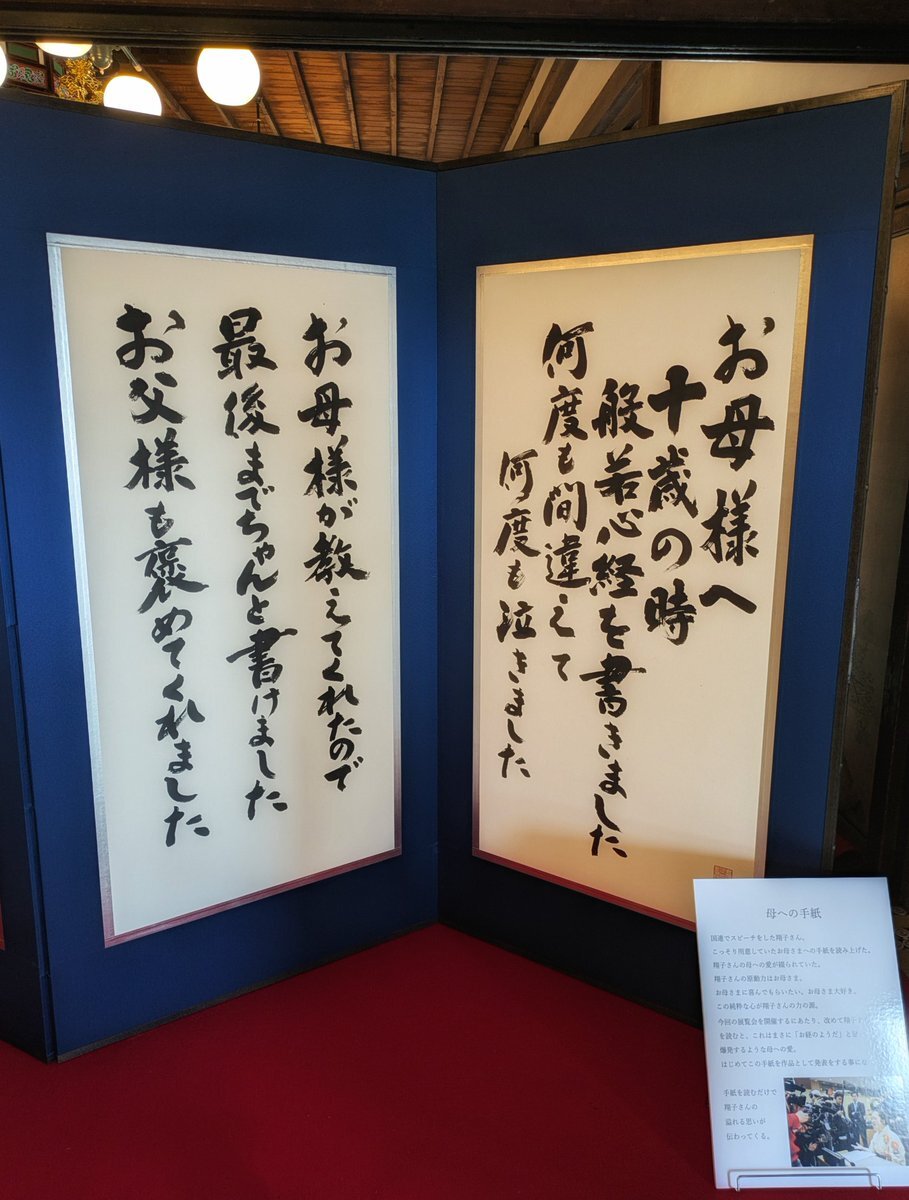 お母様へ
十歳の時
般若心経を書きました
何度も間違えて
何度も泣きました
お母様が教えてくれたので
最後までちゃんと書けました
お父様も褒めてくれました
母への手紙
国連でスピーチをした翔子さん。
こっそり用意していたお母さまへの手紙を読み上げた。
翔子さんの母への愛が綴られていた。
翔子さんの原動力はお母さま。
お母さまに喜んでもらいたい。お母さま大好き。
この純粋な心が翔子さんの力の源。
今回の展覧会を開催するにあたり、改めて翔子
を読むと、これはまさに「お経のようだ」と
爆発するような母への愛。
はじめてこの手紙を作品として発表をする事にな
手紙を読むだけで
翔子さんの
溢れる思いが
伝わってくる。